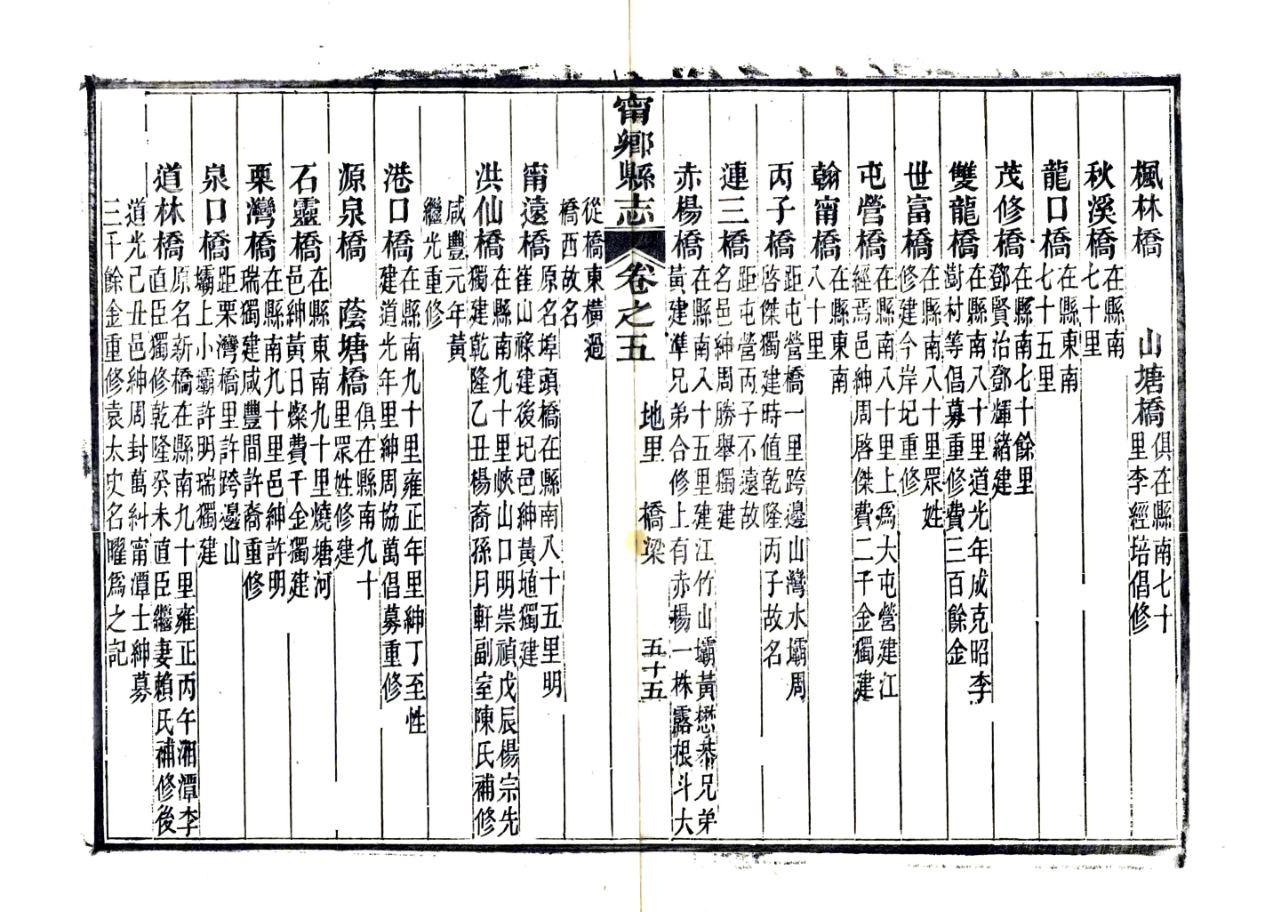 楓林橋 在縣南七十里 山塘橋 俱在縣南七十里李經培倡修
秋溪橋 在縣南七十里
龍口橋 在縣東南七十五里
茂修橋 在縣南七十餘里鄧賢治鄧輝緒建
雙龍橋 在縣南八十里道光年成克昭李澍村等倡募重修費三百餘金
世富橋 在縣南八十里眾姓修建今岸圮重修
屯營橋 在縣南八十里上爲大屯營建江經焉邑紳周啓傑費二千金獨建
翰甯橋 在縣東南八十里
丙子橋 距屯營橋一里跨邊山灣水壩周啓傑獨建時值乾隆丙子故名
連三橋 距屯營丙子不遠故名邑紳周勝舉獨建
赤楊橋 在縣南八十五里建江竹山壩黃懋恭兄弟黃建準兄弟合修上有赤楊一株露根斗大
甯鄉縣志 卷之五 地里 橋梁 五十五
從橋東橫過橋西故名
甯遠橋 原名埠頭橋在縣南八十五里明崔山篠建後圮邑紳黃埴獨建
洪仙橋 在縣南九十里峽山口明崇禎戊辰楊宗先獨建乾隆乙丑楊裔孫月軒副室陳氏補修
咸豐元年黃繼光重修
港口橋 在縣南九十里雍正年里紳丁至性建道光年里紳周協萬倡募重修
源泉橋 蔭塘橋 俱在縣南九十里眾姓修建
石靈橋 在縣東南九十里燒塘河邑紳黃日燦費千金獨建
栗灣橋 在縣南九十里邑紳許明瑞獨建咸豐間許裔重修
泉口橋 距栗灣橋里許跨邊山壩上小壩許明瑞獨建
道林橋 原名新橋在縣南九十里雍正丙午湘潭李直臣獨修乾隆癸未直臣繼妻賴氏補修後
道光己丑邑紳周封萬糾甯潭士紳募三千餘金重修袁太史名曜爲之記